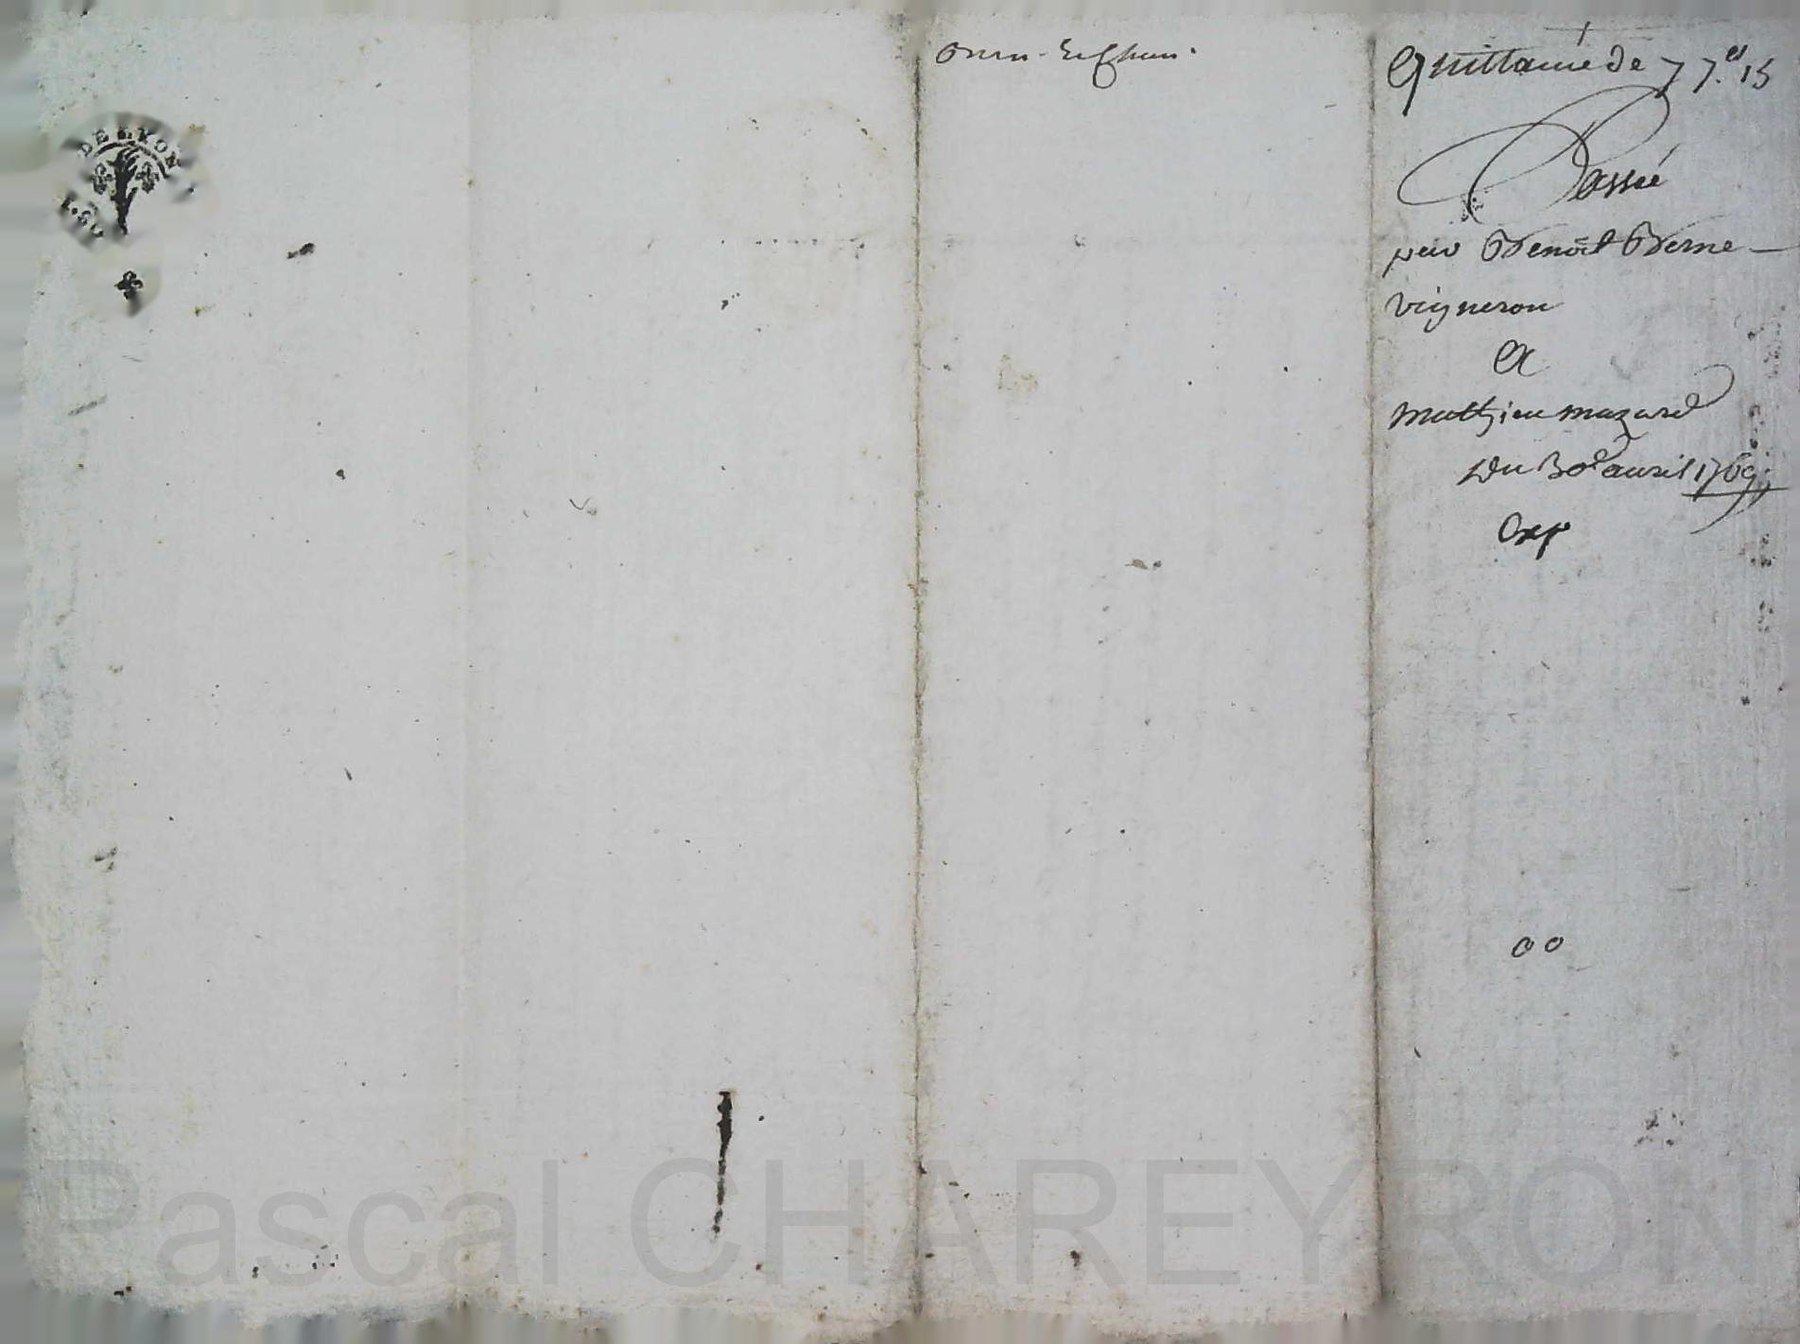 DE LYON
Quittance de 77.# 15
Passée
par Benoît Berne
vigneron
A
Mathieu mazard
Du 30e avril 1769
Exp
00
Pascal CHAREYRON